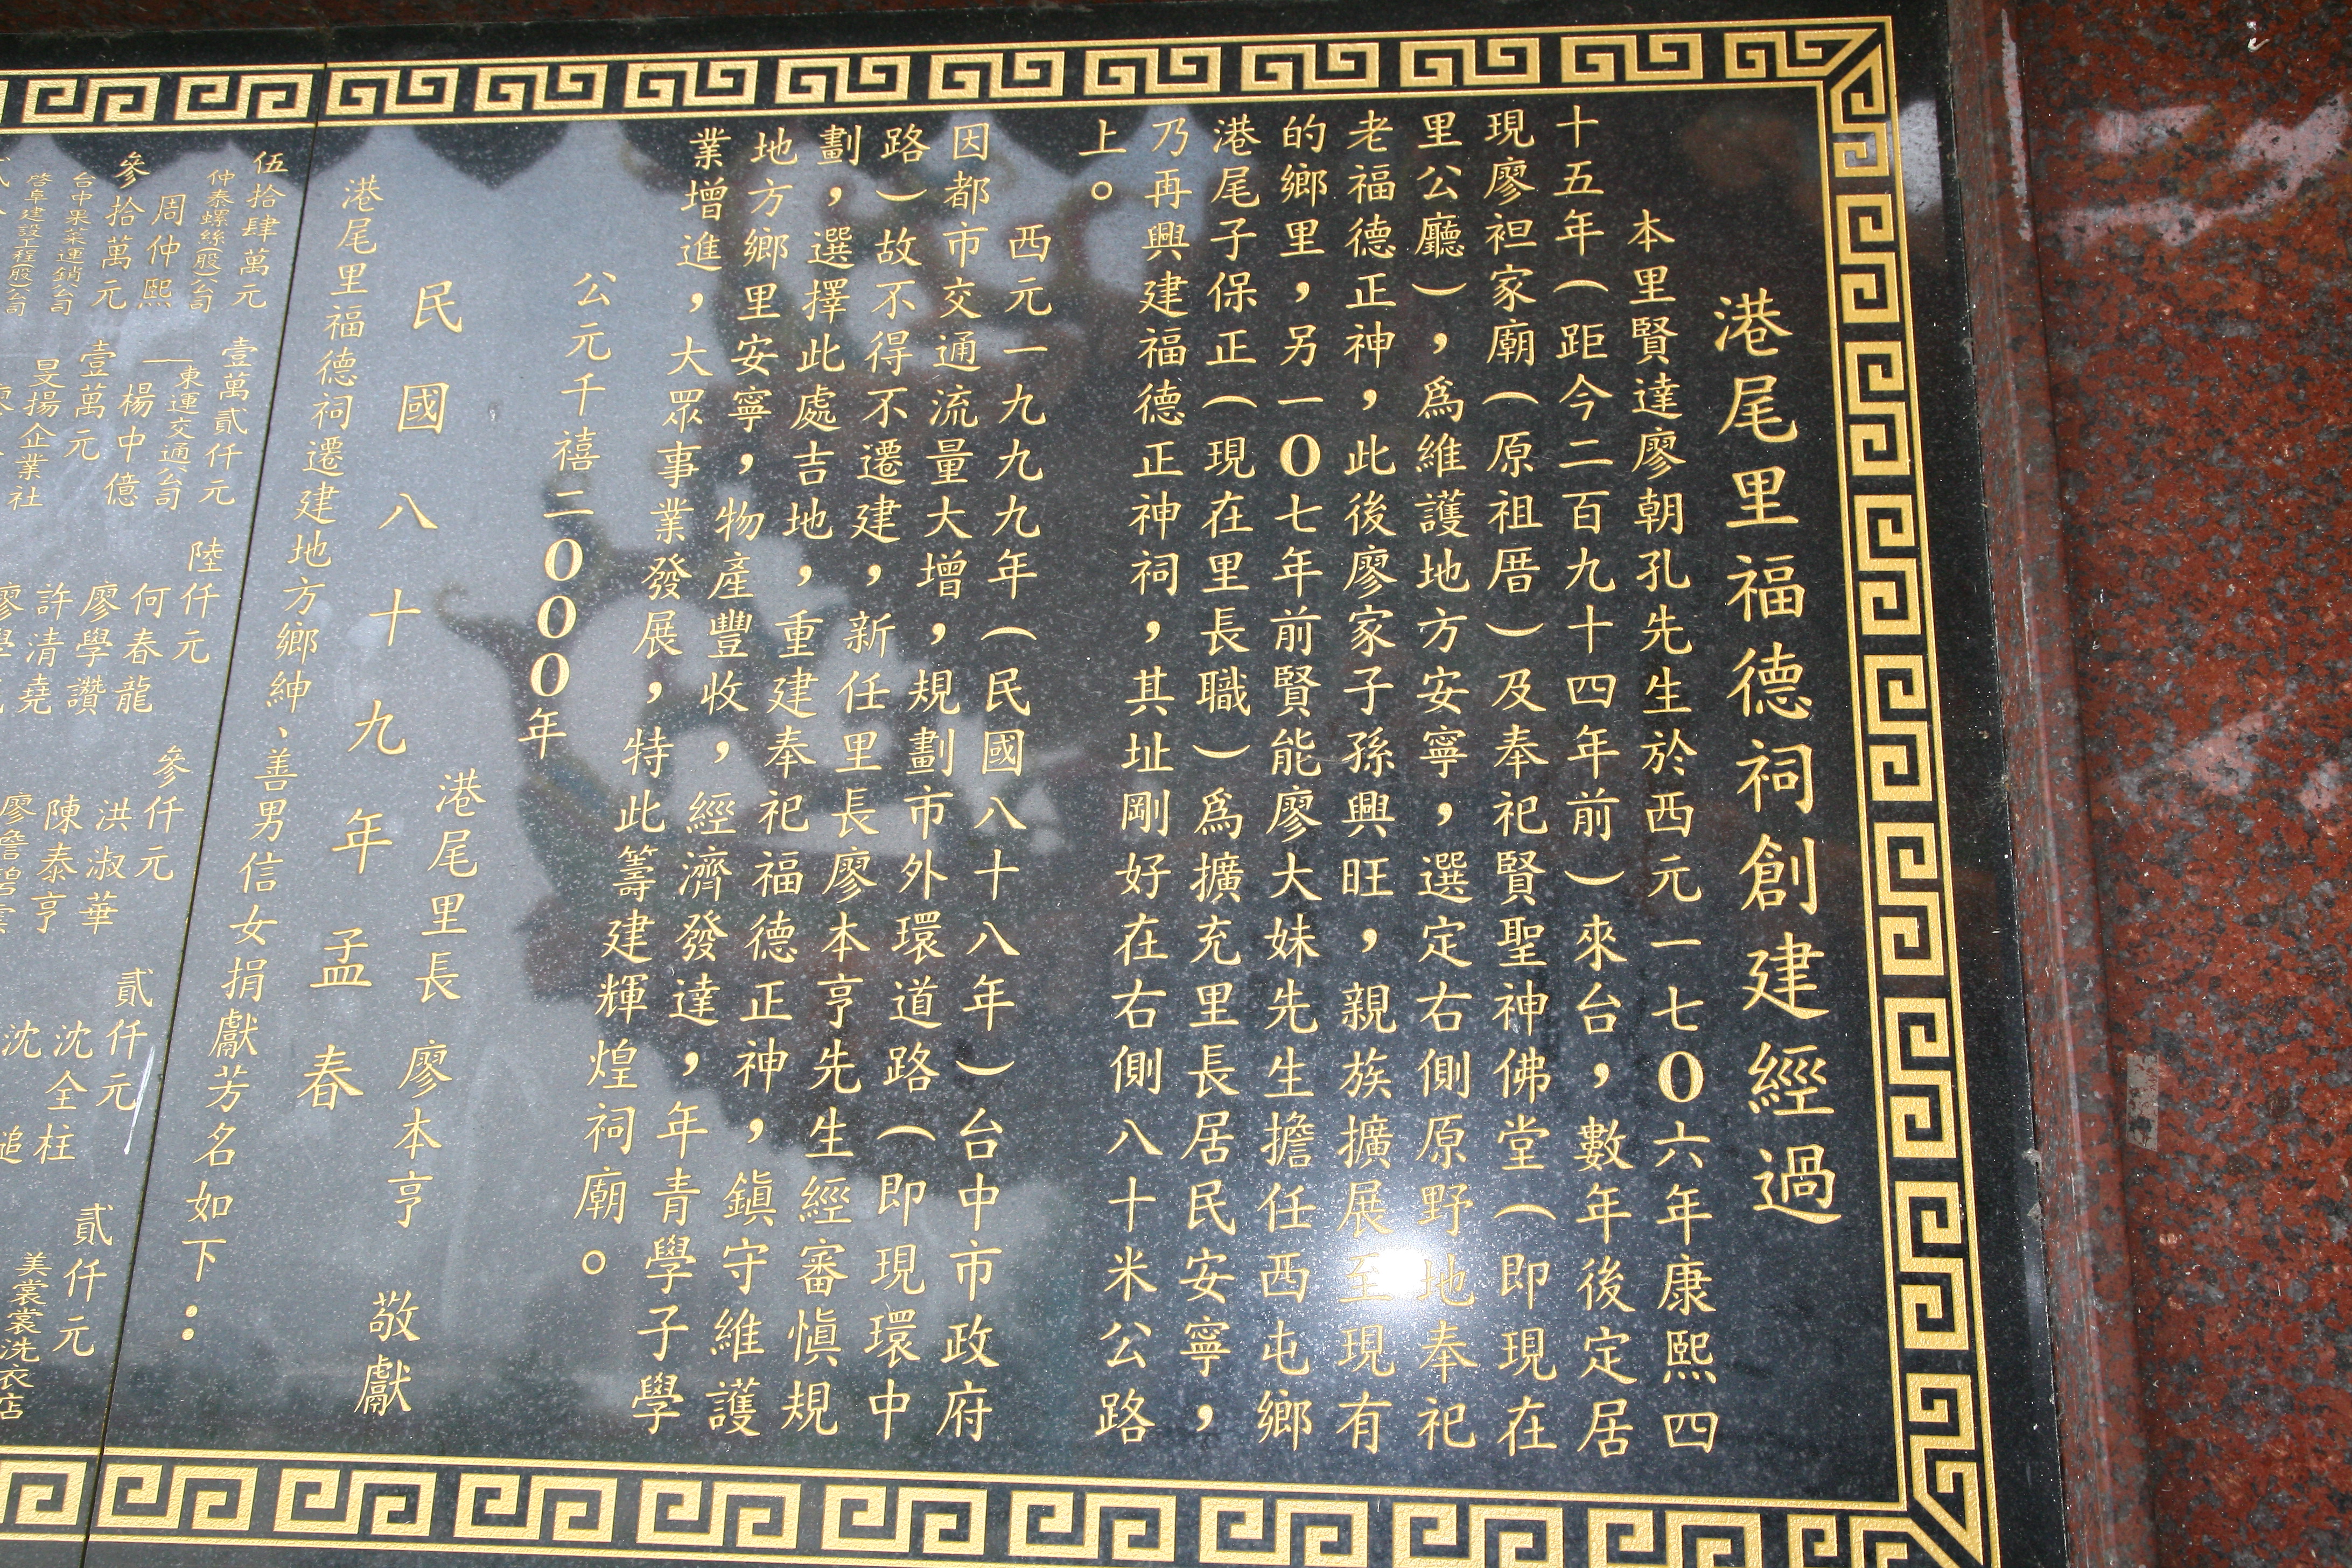 港尾里福德祠創建經過
本里賢達廖朝孔先生於西元一七０六年康熙四
十五年（距今二百九十四年前）來台，數年後定居
現廖袒家廟（原祖厝）及奉祀賢聖神佛堂（即現在
里公廳），爲維護地方安寧，選定右側原野地奉祀
老福德正神，此後廖家子孫興旺，親族擴展至現有
的鄉里，另一０七年前賢能廖大妹先生擔任西屯鄉
港尾子保正（現在里長職）爲擴充里長居民安寧，
乃再興建福德正神祠，其址剛好在右側八十米公路
上。
西元一九九九年（民國八十八年）台中市政府
因都市交通流量大增，規劃市外環道路（即現環中
路）故不得不遷建，新任里長廖本亨先生經審愼規
劃，選擇此處吉地，重建奉祀福德正神，鎭守維護
地方鄉里安寧，物產豐收，經濟發達，年青學子學
業增進，大眾事業發展，特此籌建輝煌祠廟。
公元千禧二０００年
港尾里長 廖本亨 敬獻
民國八十九年孟春
港尾里福德祠遷建地方鄉紳、善男信女捐獻芳名如下：
伍拾肆萬元
仲泰螺絲(股)公司
周仲熙
參拾萬元
台中果菜運銷公司
啓阜建設工程(股)公司
壹萬貳仟元
東運交通公司
楊中億
壹萬元
旻揚企業社
陸仟元
何春龍
廖學讚
許清堯
參仟元
洪淑華
陳泰亨
貳仟元
沈全柱
貳仟元
美裳裳洗衣店